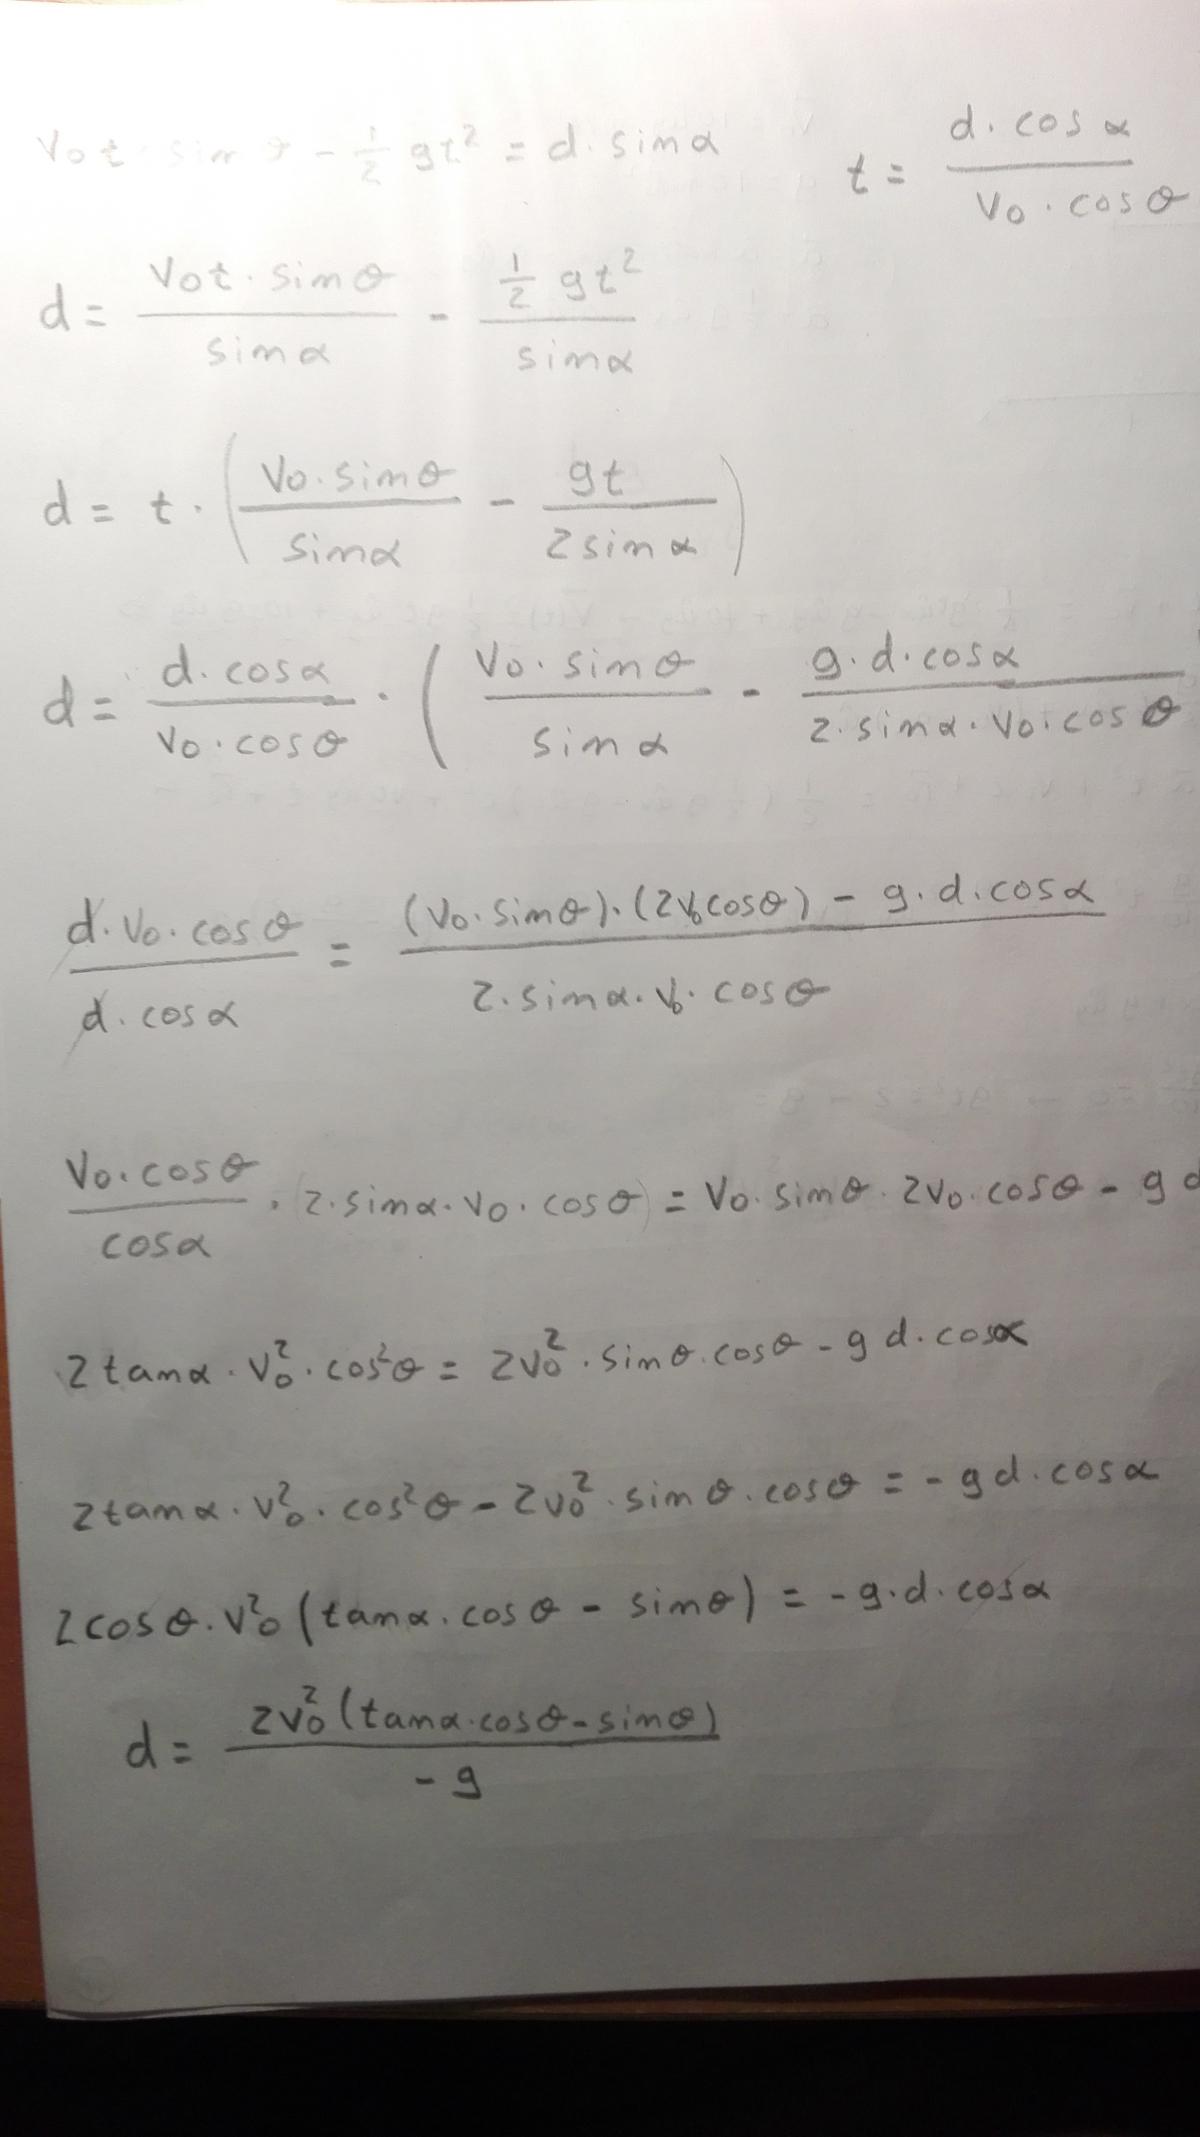 v₀t · sin θ - 1/2 gt² = d · sin α
t = (d · cos α)/(v₀ · cos θ)
d = (v₀t · sin θ)/(sin α) - (1/2 gt²)/(sin α)
d = t · ((v₀ · sin θ)/(sin α) - (gt)/(2 sin α))
d = (d · cos α)/(v₀ · cos θ) · ((v₀ · sin θ)/(sin α) - (g · d · cos α)/(2 · sin α · v₀ · cos θ)
(d · v₀ · cos θ)/(d · cos α) = ((v₀ · sin θ) · (2v₀ cos θ) - g · d · cos α)/(2 · sin α · v₀ · cos θ)
(v₀ · cos θ)/(cos α) · (2 · sin α · v₀ · cos θ) = v₀ · sin θ · 2v₀ · cos θ - g d
2 tan α · v₀² · cos² θ = 2v₀² · sin θ · cos θ - g d · cos α
2 tan α · v₀² · cos² θ - 2v₀² · sin θ · cos θ = - g d · cos α
2 cos θ · v₀² (tan α · cos θ - sin θ) = - g · d · cos α
d = (2v₀² (tan α · cos θ - sin θ))/(- g)